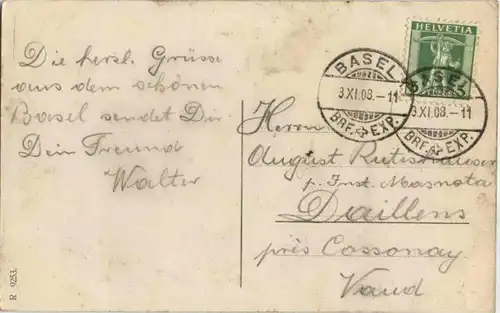 Die herzl. Grüsse
aus dem schönen
Basel sendet Dir
Dein Freund
Walter
R 9253.
HELVETIA
BASEL
3.XI.08.–11
BRF. EXP.
BASEL
3.XI.08.–11
BRF. EXP.
Herrn
August Rutishauser
p. Inst. Masnata
Daillens
près Cossonay
Vaud